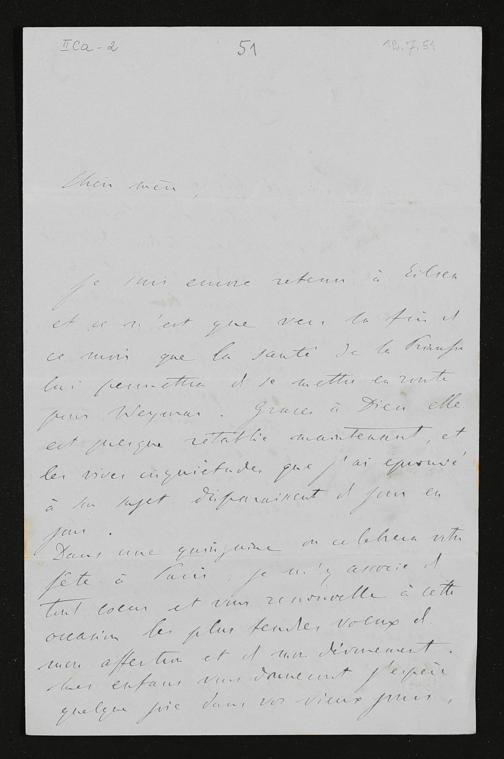 IICa-2 51 12.7.51
Chère mère,
Je suis encore retenu à Eilsen
et ce n'est que vers la fin d
ce mois que la santé de la Princesse
lui permettra d se mettre en route
pour Weymar. Graces à Dieu elle
est presque rétablie maintenant, et
les vives inquiétudes que j'ai éprouvé
à son sujet disparaissent d jour en
jour.
Dans une quinzaine on celebrera votre
fête à Paris, je m'y associe d
tout coeur et vous renouvelle à cette
occasion les plus tendres voeux d
mon affection et d mon dévouement.
Mes enfans vous donneront j'espère
quelque joie dans vos vieux jours,